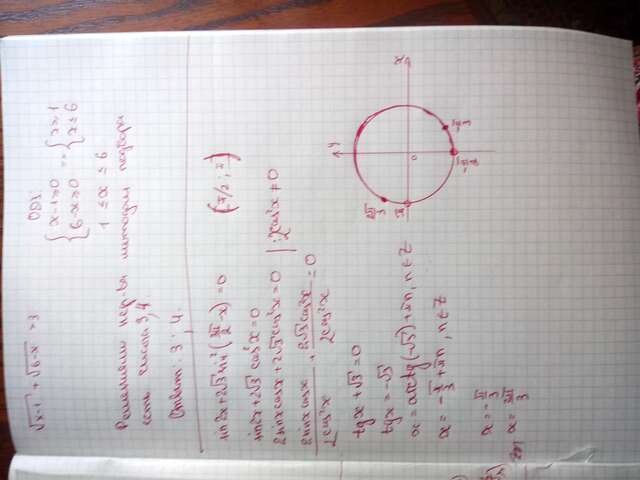 √x-1 + √6-x > 3
ОДЗ:
{ x-1≥0 { x≥1
{ 6-x≥0 == { x≤6
1 ≤ x ≤ 6
Решениями нер-ва методом подбора
есть числа 3, 4
Ответ: 3; 4.
sin2x+2√3 sin²(3π/2 -x) = 0 (π/2; π)
sin2x+2√3 cos²x=0
2sinxcosx+2√3 cos²x=0 | :2cos²x≠0
2sinxcosx/2cos²x + 2√3cos²x/2cos²x = 0
tgx+√3=0
tgx=-√3
x=arctg(-√3)+πn, n∈Z
x = -π/3 + πn, n∈Z
x = -π/3
x = 2π/3
y
x
0
2π/3
π
-π/2
-π/3